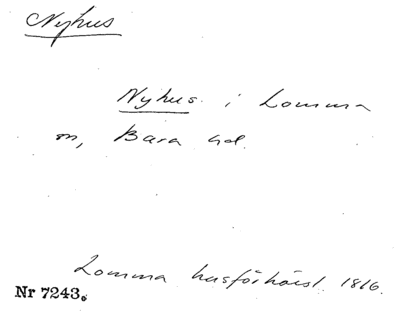 Nyhus
Nyhus i Lomma
sn, Bara hd.
Lomma husförhörsl. 1816.
Nr 7243.